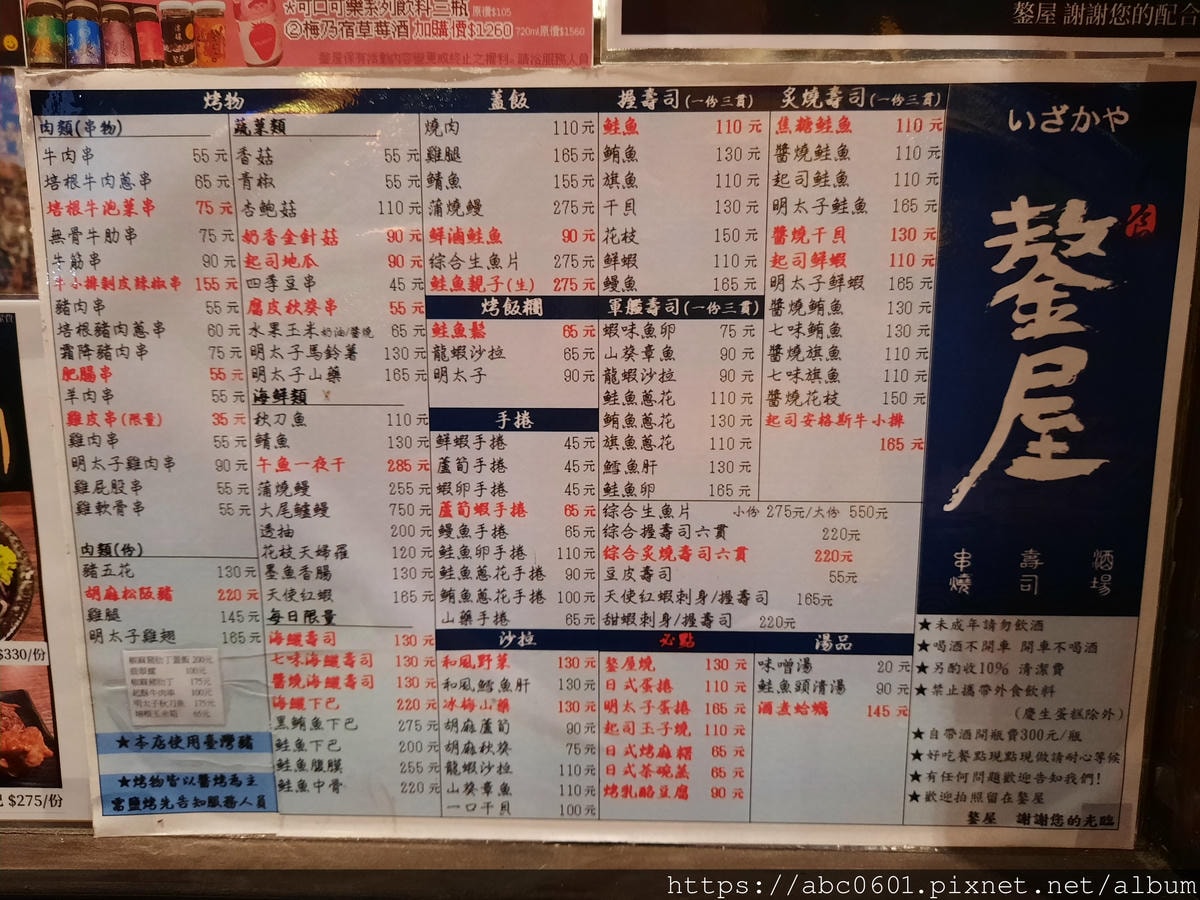 ★可口可樂系列飲料三瓶 原價$105
②梅乃宿草莓酒 加購價$1260 720ml原價$1560
鏊屋保有活動內容變更或終止之權利。請洽服務人員
鏊屋 謝謝您的配合
烤物
肉類(串物)
牛肉串 55元
培根牛肉蔥串 65元
培根牛泡菜串 75元
無骨牛肋串 75元
牛筋串 90元
牛小排剝皮辣椒串 155元
豬肉串 55元
培根豬肉蔥串 60元
霜降豬肉串 75元
肥腸串 55元
羊肉串 55元
雞皮串(限量) 35元
雞肉串 55元
明太子雞肉串 90元
雞屁股串 55元
雞軟骨串 55元
肉類(份)
豬五花 130元
胡麻松阪豬 220元
雞腿 145元
明太子雞翅 165元
椒麻豬肋丁蓋飯 200元
100元
椒麻豬肋丁 175元
起酥牛肉串 100元
明太子秋刀魚 175元
65元
★本店使用臺灣豬
★烤物皆以醬烤為主
需鹽烤先告知服務人員
蔬菜類
香菇 55元
青椒 55元
杏鮑菇 110元
奶香金針菇 90元
起司地瓜 90元
四季豆串 45元
腐皮秋葵串 55元
水果玉米奶油/醬燒 65元
明太子馬鈴薯 130元
明太子山藥 165元
海鮮類
秋刀魚 110元
鯖魚 130元
午魚一夜干 285元
蒲燒鰻 255元
大尾鱸鰻 750元
透抽 200元
花枝天婦羅 120元
墨魚香腸 130元
天使紅蝦 165元
每日限量
海鱺壽司 130元
七味海鱺壽司 130元
醬燒海鱺壽司 130元
海鱺下巴 220元
黑鮪魚下巴 275元
鮭魚下巴 200元
鮭魚腹膜 255元
鮭魚中骨 220元
蓋飯
燒肉 110元
雞腿 165元
鯖魚 155元
蒲燒鰻 275元
鮮滷鮭魚 90元
綜合生魚片 275元
鮭魚親子(生) 275元
烤飯糰
鮭魚鬆 65元
龍蝦沙拉 65元
明太子 90元
手捲
鮮蝦手捲 45元
蘆筍手捲 45元
蝦卵手捲 45元
蘆筍蝦手捲 65元
鰻魚手捲 65元
鮭魚卵手捲 110元
鮭魚蔥花手捲 90元
鮪魚蔥花手捲 100元
山藥手捲 65元
沙拉
和風野菜 130元
和風鱈魚肝 130元
冰梅山藥 130元
胡麻蘆筍 90元
胡麻秋葵 75元
龍蝦沙拉 110元
山葵章魚 110元
一口干貝 100元
握壽司(一份三貫)
鮭魚 110元
鮪魚 130元
旗魚 110元
干貝 130元
花枝 150元
鮮蝦 110元
鰻魚 165元
軍艦壽司(一份三貫)
蝦味魚卵 75元
山葵章魚 90元
龍蝦沙拉 90元
鮭魚蔥花 110元
鮪魚蔥花 130元
旗魚蔥花 110元
鱈魚肝 130元
鮭魚卵 165元
炙燒壽司(一份三貫)
焦糖鮭魚 110元
醬燒鮭魚 110元
起司鮭魚 110元
明太子鮭魚 165元
醬燒干貝 130元
起司鮮蝦 110元
明太子鮮蝦 165元
醬燒鮪魚 130元
七味鮪魚 130元
醬燒旗魚 110元
七味旗魚 110元
醬燒花枝 150元
起司安格斯牛小排
165元
綜合生魚片 小份275元/大份550元
綜合握壽司六貫 220元
綜合炙燒壽司六貫 220元
豆皮壽司 55元
天使紅蝦刺身/握壽司 165元
甜蝦刺身/握壽司 220元
必點
鏊屋燒 130元
日式蛋捲 110元
明太子蛋捲 165元
起司玉子燒 110元
日式烤麻糬 65元
日式茶碗蒸 65元
烤乳酪豆腐 90元
湯品
味噌湯 20元
鮭魚頭清湯 90元
酒煮蛤蠣 145元
いざかや
鏊屋
串燒 壽司 酒場
★未成年請勿飲酒
★喝酒不開車 開車不喝酒
★另酌收10% 清潔費
★禁止攜帶外食飲料
(慶生蛋糕除外)
★自帶酒開瓶費300元/瓶
★好吃餐點現點現做請耐心等候
★有任何問題歡迎告知我們!
★歡迎拍照留在鏊屋
鏊屋 謝謝您的光臨
$330/份
$275/份
https://abc0601.pixnet.net/album